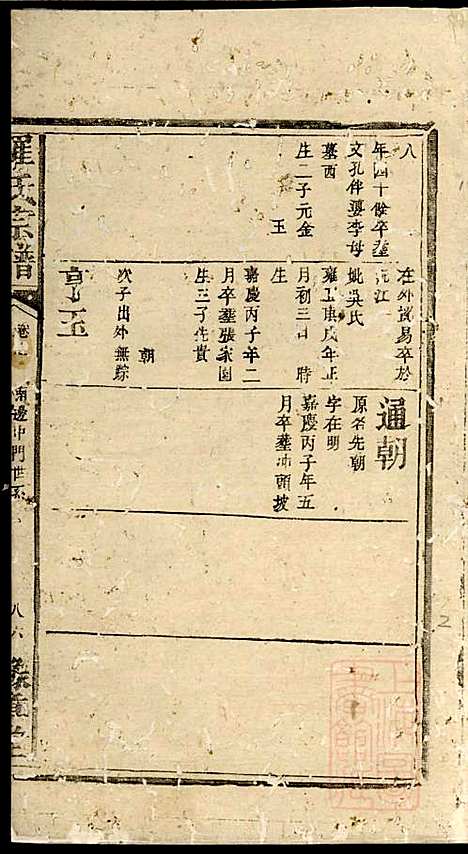 八
年四十餘卒塟
文孔伴婆李母
墓西
生二子元金
玉
在外貿易卒於
沅江
妣吳氏
雍正庚戌年正
月初三日 時
生
嘉慶丙子年二
月卒塟張家園
生三子先貴
朝
次子出外無踪
亨玉
通朝
原名先朝
字在明
嘉慶丙子年五
月卒塟冲頭坡
羅氏宗譜
南邊中門世系
八六